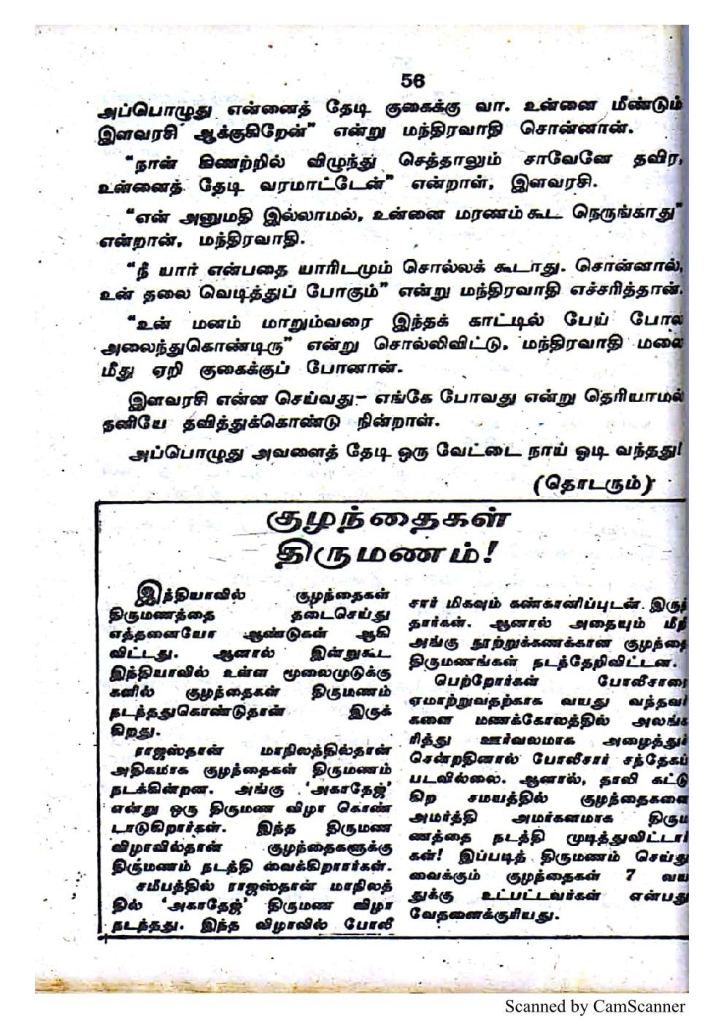 56
அப்பொழுது என்னைத் தேடி குகைக்கு வா. உன்னை மீண்டும்
இளவரசி ஆக்குகிறேன்" என்று மந்திரவாதி சொன்னான்.
"நான் கிணற்றில் விழுந்து செத்தாலும் சாவேனே தவிர,
உன்னைத் தேடி வரமாட்டேன்" என்றாள், இளவரசி.
"என் அனுமதி இல்லாமல், உன்னை மரணம் கூட நெருங்காது"
என்றான், மந்திரவாதி.
"நீ யார் என்பதை யாரிடமும் சொல்லக் கூடாது. சொன்னால்,
உன் தலை வெடித்துப் போகும்" என்று மந்திரவாதி எச்சரித்தான்.
"உன் மனம் மாறும்வரை இந்தக் காட்டில் பேய் போல
அலைந்துகொண்டிரு" என்று சொல்லிவிட்டு, மந்திரவாதி மலை
மீது ஏறி குகைக்குப் போனான்.
இளவரசி என்ன செய்வது- எங்கே போவது என்று தெரியாமல்
தனியே தவித்துக்கொண்டு நின்றாள்.
அப்பொழுது அவளைத் தேடி ஒரு வேட்டை நாய் ஓடி வந்தது!
(தொடரும்)
குழந்தைகள்
திருமணம்!
இந்தியாவில் குழந்தைகள்
திருமணத்தை தடைசெய்து
எத்தனையோ ஆண்டுகள் ஆகி
விட்டது. ஆனால் இன்றுகூட
இந்தியாவில் உள்ள மூலைமுடுக்கு
களில் குழந்தைகள் திருமணம்
நடந்ததுகொண்டுதான் இருக்
கிறது.
ராஜஸ்தான் மாநிலத்தில்தான்
அதிகமாக குழந்தைகள் திருமணம்
நடக்கின்றன. அங்கு 'அகாதேஜ்'
என்று ஒரு திருமண விழா கொண்
டாடுகிறார்கள். இந்த திருமண
விழாவில்தான் குழந்தைகளுக்கு
திருமணம் நடத்தி வைக்கிறாரர்கள்.
சமீபத்தில் ராஜஸ்தான் மாநிலத்
தில் 'அகாதேஜ்' திருமண விழா
நடந்தது. இந்த விழாவில் போலீ
சார் மிகவும் கண்கானிப்புடன் இருந்
தார்கள். ஆனால் அதையும் மீறி
அங்கு நூற்றுக்கணக்கான குழந்தை
திருமணங்கள் நடந்தேறிவிட்டன.
பெற்றோர்கள் போலீசாரை
ஏமாற்றுவதற்காக வயது வந்தவர்
களை மணக்கோலத்தில் அலங்க
ரித்து ஊர்வலமாக அழைத்துச்
சென்றதினால் போலீசார் சந்தேகப்
படவில்லை. ஆனால், தாலி கட்டு
கிற சமயத்தில் குழந்தைகளை
அமர்த்தி அமர்களமாக திரும
ணத்தை நடத்தி முடித்துவிட்டார்
கள்! இப்படித் திருமணம் செய்து
வைக்கும் குழந்தைகள் 7 வய
துக்கு உட்பட்டவர்கள் என்பது
வேதனைக்குரியது.
Scanned by CamScanner